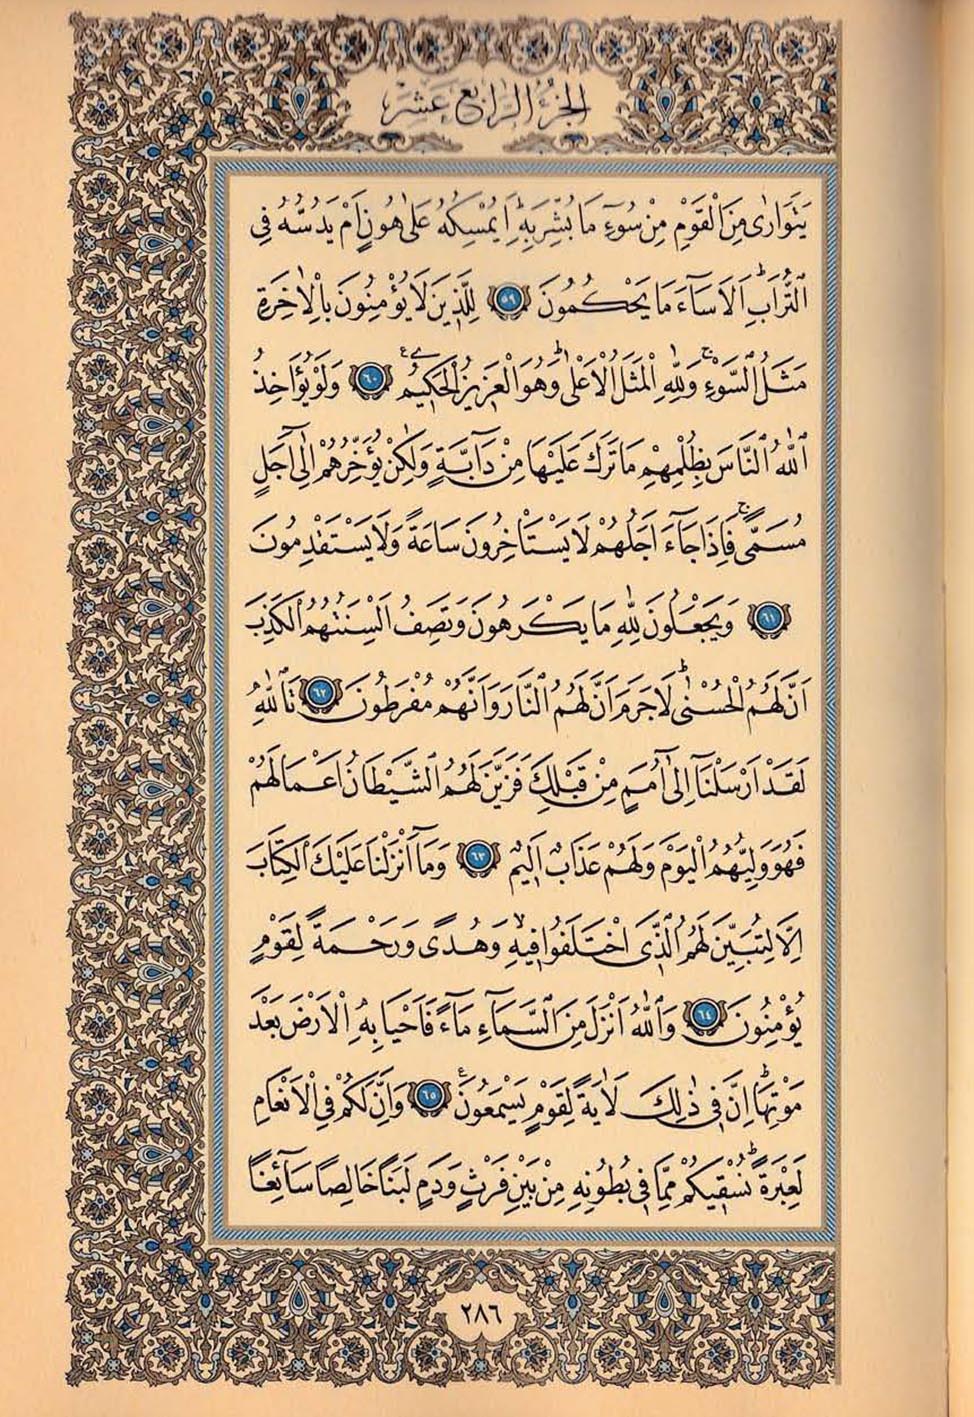 الجزء الرابع عشر
يَتَوَارٰى مِنَ الْقَوْمِ مِنْ سُٓوءِ مَا بُشِّرَ بِهِۜ اَيُمْسِكُهُ عَلٰى هُونٍ اَمْ يَدُسُّهُ فِي
التُّرَابِۜ اَلَا سَٓاءَ مَا يَحْكُمُونَ ﴿٥٩﴾ لِلَّذِينَ لَا يُؤْمِنُونَ بِالْاٰخِرَةِ
مَثَلُ السَّوْءِۚ وَلِلّٰهِ الْمَثَلُ الْاَعْلٰىۜ وَهُوَ الْعَزِيزُ الْحَكِيمُ ﴿٦٠﴾ وَلَوْ يُؤَاخِذُ
اللّٰهُ النَّاسَ بِظُلْمِهِمْ مَا تَرَكَ عَلَيْهَا مِنْ دَٓابَّةٍ وَلٰكِنْ يُؤَخِّرُهُمْ اِلٰٓى اَجَلٍ
مُسَمًّىۚ فَاِذَا جَٓاءَ اَجَلُهُمْ لَا يَسْتَأْخِرُونَ سَاعَةً وَلَا يَسْتَقْدِمُونَ
﴿٦١﴾ وَيَجْعَلُونَ لِلّٰهِ مَا يَكْرَهُونَ وَتَصِفُ اَلْسِنَتُهُمُ الْكَذِبَ
اَنَّ لَهُمُ الْحُسْنٰىۜ لَا جَرَمَ اَنَّ لَهُمُ النَّارَ وَاَنَّهُمْ مُفْرَطُونَ ﴿٦٢﴾ تَاللّٰهِ
لَقَدْ اَرْسَلْنَٓا اِلٰٓى اُمَمٍ مِنْ قَبْلِكَ فَزَيَّنَ لَهُمُ الشَّيْطَانُ اَعْمَالَهُمْ
فَهُوَ وَلِيُّهُمُ الْيَوْمَ وَلَهُمْ عَذَابٌ اَلِيمٌ ﴿٦٣﴾ وَمَٓا اَنْزَلْنَا عَلَيْكَ الْكِتَابَ
اِلَّا لِتُبَيِّنَ لَهُمُ الَّذِي اخْتَلَفُوا فِيهِۙ وَهُدًى وَرَحْمَةً لِقَوْمٍ
يُؤْمِنُونَ ﴿٦٤﴾ وَاللّٰهُ اَنْزَلَ مِنَ السَّمَٓاءِ مَٓاءً فَاَحْيَا بِهِ الْاَرْضَ بَعْدَ
مَوْتِهَاۜ اِنَّ فِي ذٰلِكَ لَاٰيَةً لِقَوْمٍ يَسْمَعُونَ ﴿٦٥﴾ وَاِنَّ لَكُمْ فِي الْاَنْعَامِ
لَعِبْرَةًۜ نُسْقِيكُمْ مِمَّا فِي بُطُونِهِ مِنْ بَيْنِ فَرْثٍ وَدَمٍ لَبَنًا خَالِصًا سَٓائِغًا
٢٨٦